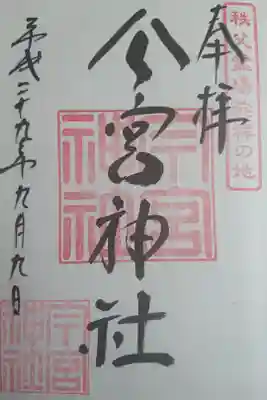 秩父霊場発祥の地
奉拝
今宮神社
平成二十九年九月九日
今宮
神社
今宮
神社